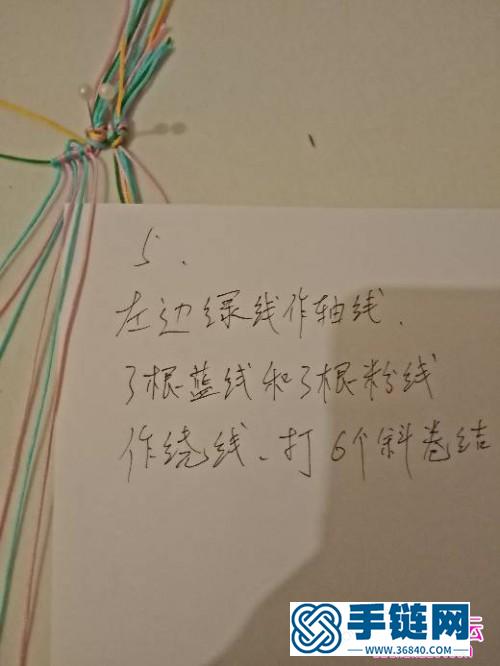 5.
左边绿线作轴线.
3根蓝线和3根粉线
作绕线、打6个斜卷结
坛
手链网
WWW.36840.COM